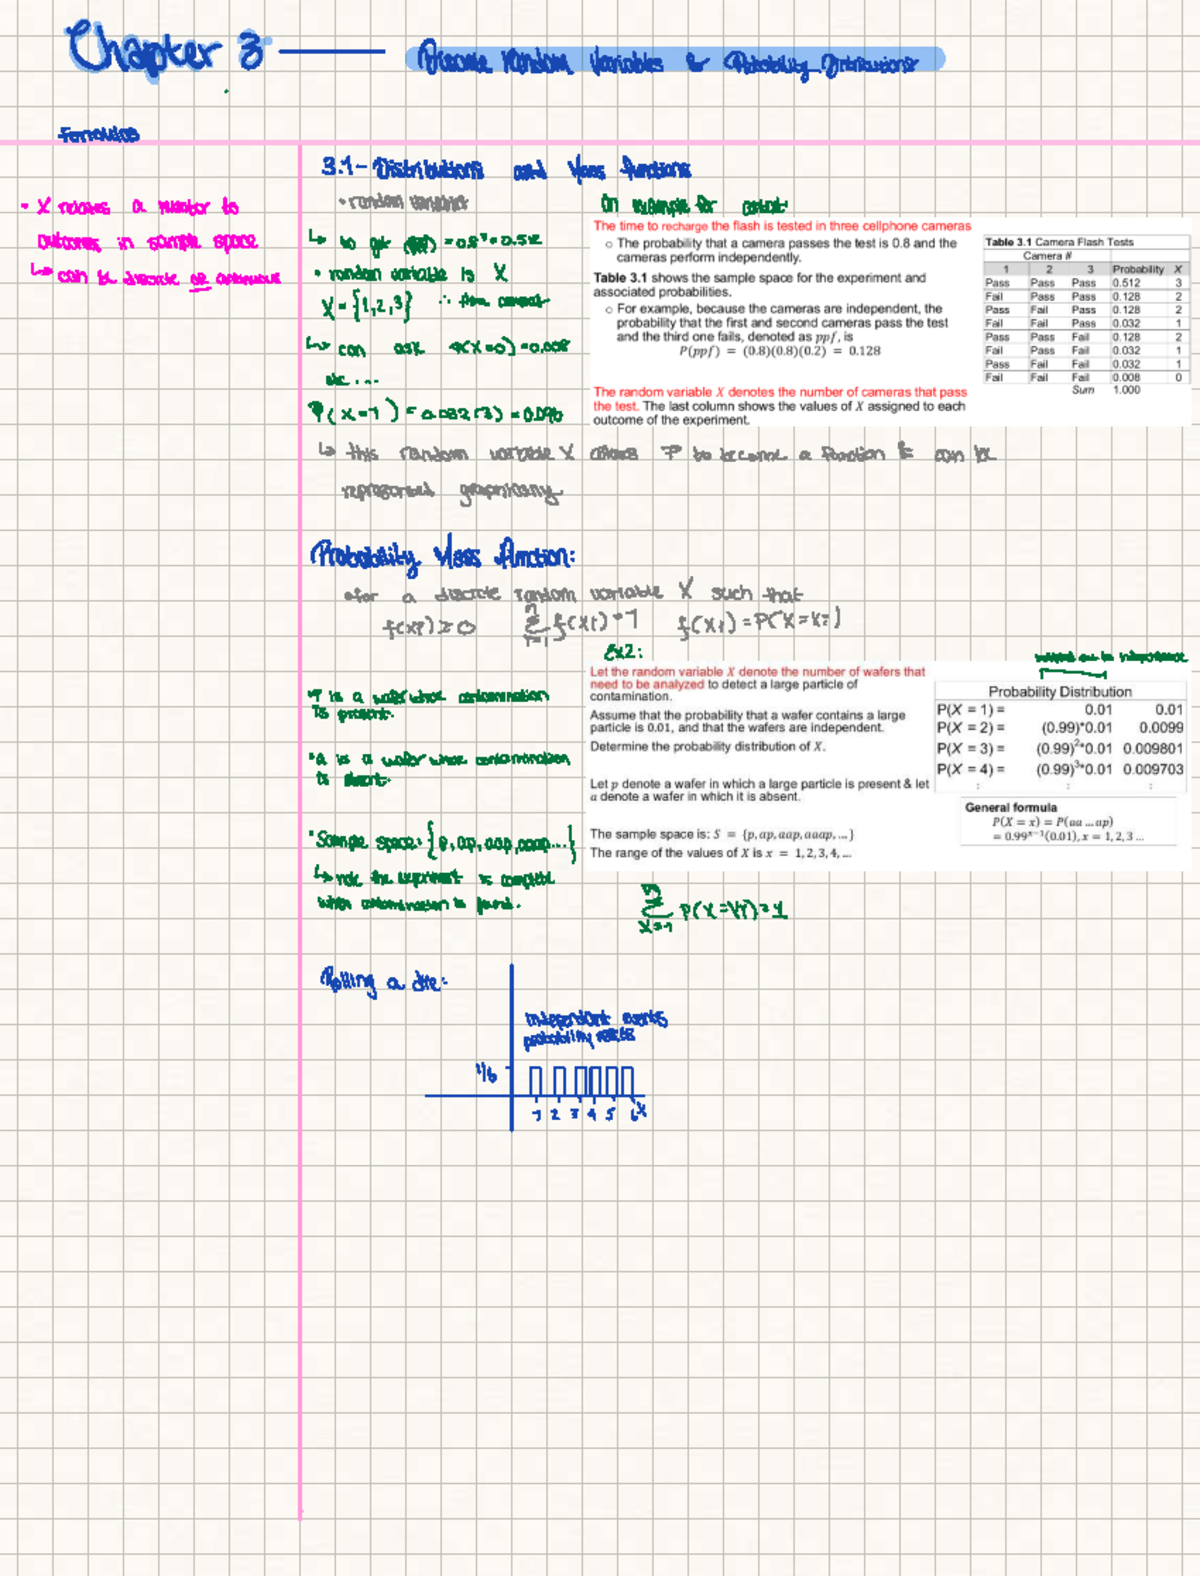 Chapter 3
Discrete Random Variables & Probability Distributions
Formulas
• X relates a number to
outcomes in sample space
↳ can be discrete or continuous
3.1 - Distributions and Mass functions
• random variable
↳ to get (PPP) = 0.8³ = 0.512
• random variable is X
X = {1,2,3} ∴
↳ can ask P(X=0) = 0.008
etc ....
P(X=1) = 0.032(3) = 0.096
An example for context:
The time to recharge the flash is tested in three cellphone cameras
o The probability that a camera passes the test is 0.8 and the
cameras perform independently.
Table 3.1 shows the sample space for the experiment and
associated probabilities.
o For example, because the cameras are independent, the
probability that the first and second cameras pass the test
and the third one fails, denoted as ppf, is
P(ppf) = (0.8)(0.8)(0.2) = 0.128
The random variable X denotes the number of cameras that pass
the test. The last column shows the values of X assigned to each
outcome of the experiment.
Table 3.1 Camera Flash Tests
Camera #
1 2 3 Probability X
Pass Pass Pass 0.512 3
Fail Pass Pass 0.128 2
Pass Fail Pass 0.128 2
Fail Fail Pass 0.032 1
Pass Pass Fail 0.128 2
Fail Pass Fail 0.032 1
Pass Fail Fail 0.032 1
Fail Fail Fail 0.008 0
Sum 1.000
↳ this random variable X allows P to become a function & can be
represented graphically
Probability Mass function:
for a discrete random variable X such that
f(xi) ≥ 0 n Σ i=1 f(xi) = 1 f(xi) = P(X = xi)
Ex2:
• P is a wafer where contamination
is present.
• a is a wafer where contamination
is absent.
• Sample space: {P, ap, aap, aaap...}
↳ note the experiment is complete
when contamination is found.
Let the random variable X denote the number of wafers that
need to be analyzed to detect a large particle of
contamination.
Assume that the probability that a wafer contains a large
particle is 0.01, and that the wafers are independent.
Determine the probability distribution of X.
Let p denote a wafer in which a large particle is present & let
a denote a wafer in which it is absent.
The sample space is: S = {p, ap, aap, aaap, ...}
The range of the values of X is x = 1, 2, 3, 4, ...
due to independence
Probability Distribution
P(X = 1) = 0.01 0.01
P(X = 2) = (0.99)*0.01 0.0099
P(X = 3) = (0.99)²*0.01 0.009801
P(X = 4) = (0.99)³*0.01 0.009703
: : :
General formula
P(X = x) = P(aa ... ap)
= 0.99ˣ⁻¹(0.01), x = 1, 2, 3 ...
∞ Σ X=1 P(X=Xi) = 1
Rolling a die:
independent events
probability
1/6
1 2 3 4 5 6 X